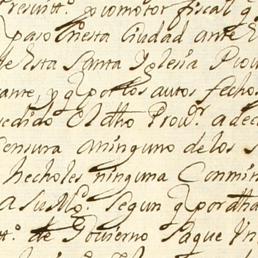 promotor fiscal q
paso en esta Ciudad ante
de esta Santa Iglesia Prou
ante, y q por los autos fechos
cedido El dho Prou.r a dec
censura aninguno de los
hecholes ninguna Conmin
A Su Mg. segun q por dha
de Gouierno saque Vn